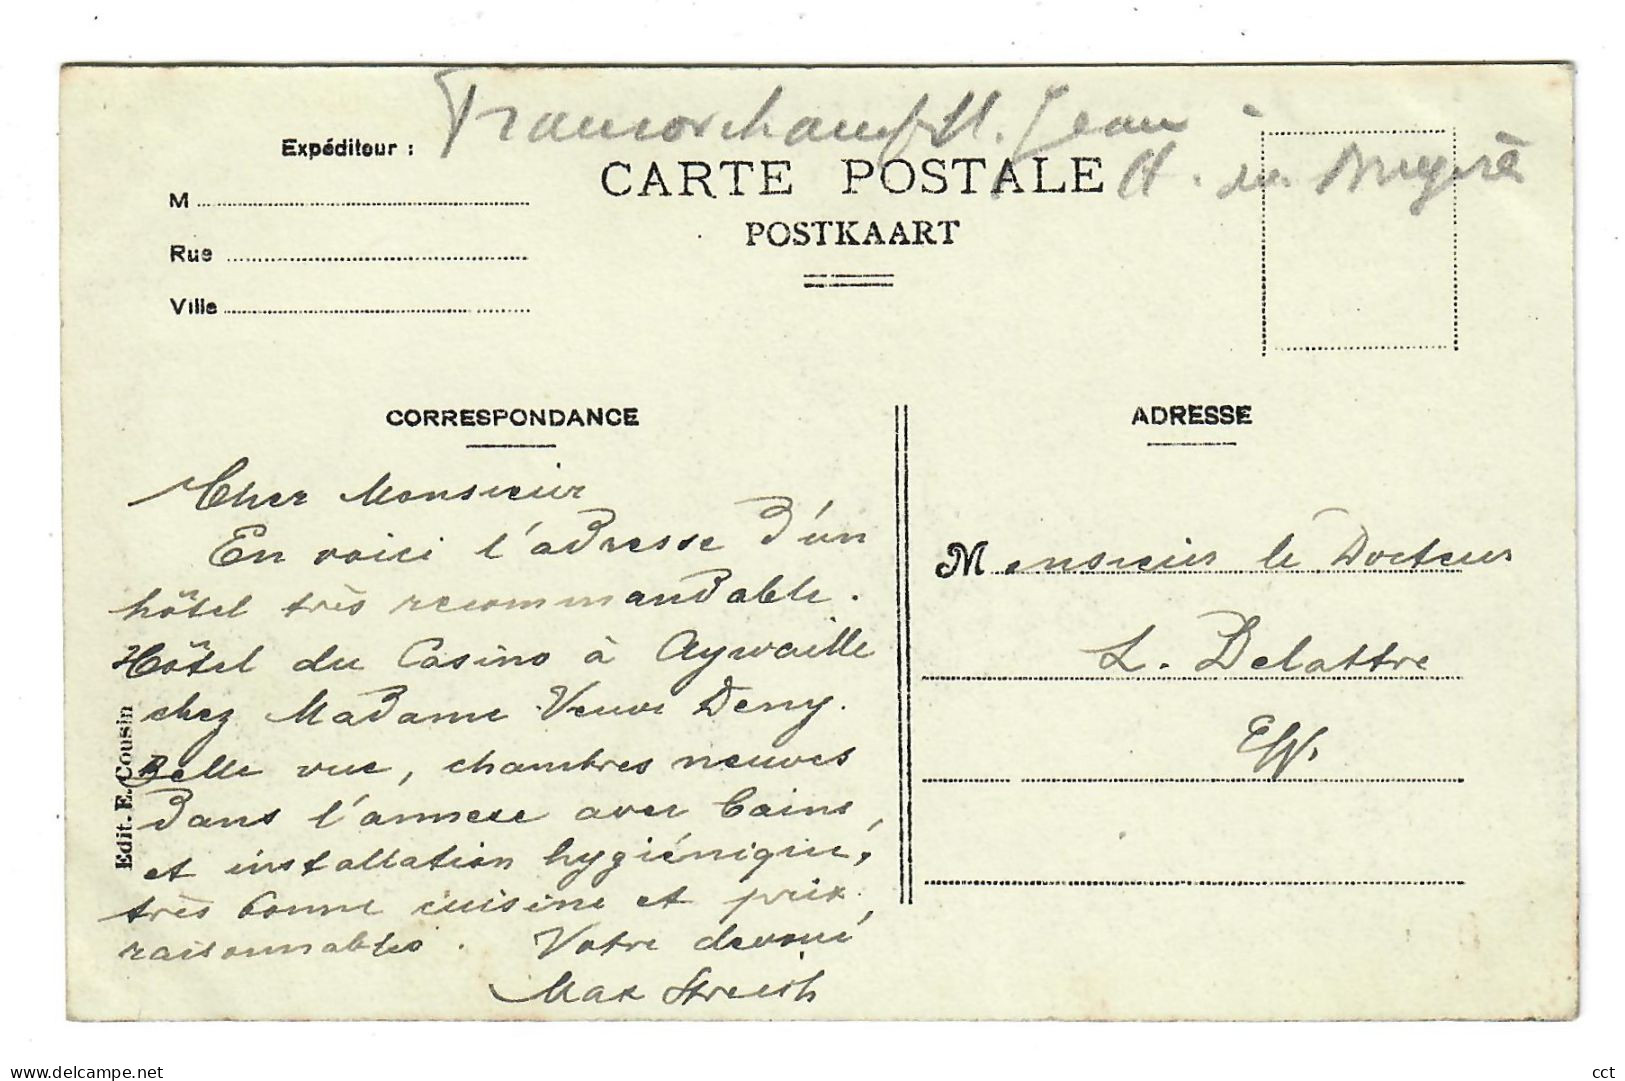 Francorchamps H. Jean
Expéditeur :
CARTE POSTALE
H.
M
POSTKAART
Rue
Ville
CORRESPONDANCE
Cher Monsieur
En voici l'adresse d'un
hôtel très recommandable.
Hôtel du Casino à Aywaille
chez Madame Veuve Deny.
Belle vue, chambres neuves
dans l'annexe avec bains,
et installation hygiénique,
très bonne cuisine et prix
raisonnables. Votre devoué,
Max
Edit. E. Cousin
ADRESSE
Monsieur le Docteur
L. Delattre
E/V.
delcampe.net
cct